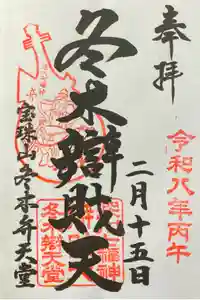 奉拝
令和八年丙午
二月十五日
冬木辯財天
宝珠山冬木弁天堂
七福神
冬木辯天堂